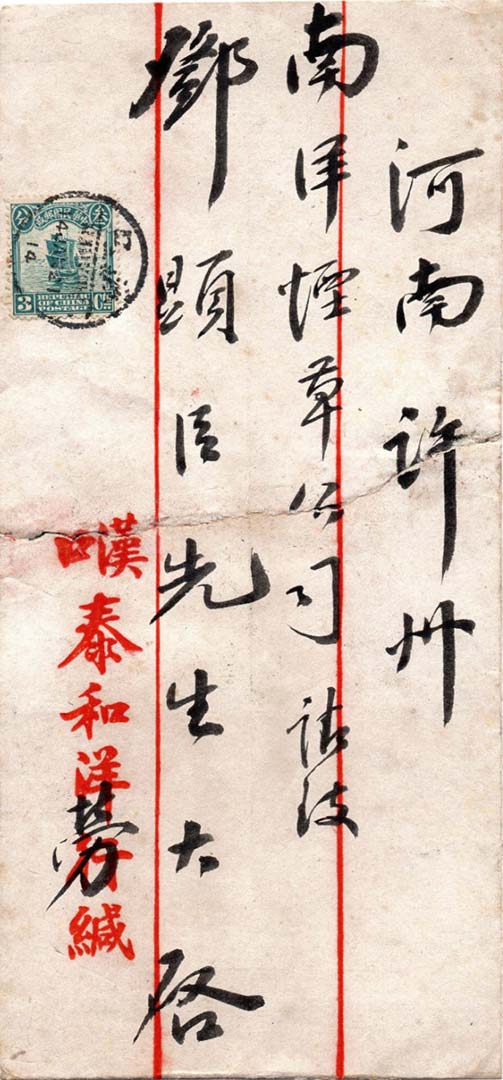 河南許州
南洋煙草公司
鄧顕臣先生大啓
漢口泰和洋行緘
勞
中華民國郵政
叁分
3 REPUBLIC OF CHINA POSTAGE Cts
14